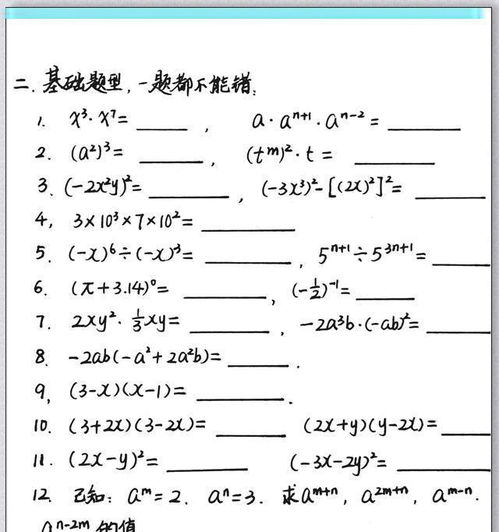 二、基础题型,一题都不能错:
1. x³·x⁷= ____ , a·aⁿ⁺¹·aⁿ⁻²= ____
2. (a²)³= ____ , (tᵐ)²·t = ____
3. (-2x²y)²= ____ , (-3x³)²-[(2x)²]²= ____
4, 3×10³×7×10²= ____
5. (-x)⁶÷(-x)³= ____ , 5ⁿ⁺¹÷5³ⁿ⁺¹= ____
6. (π+3.14)⁰= ____ , (-½)⁻¹= ____
7. 2xy²·⅓xy= ____ , -2a³b·(-ab)²= ____
8. -2ab(-a²+2a²b)= ____ .
9, (3-x)(x-1)= ____ .
10. (3+2x)(3-2x)= ____ (2x+y)(y-2x)= ____
11. (2x-y)²= ____ (-3x-2y)²= ____
12. 已知: aᵐ=2. aⁿ=3. 求aᵐ⁺ⁿ, a²ᵐ⁺ⁿ, aᵐ⁻ⁿ.
aⁿ⁻²ᵐ 的值